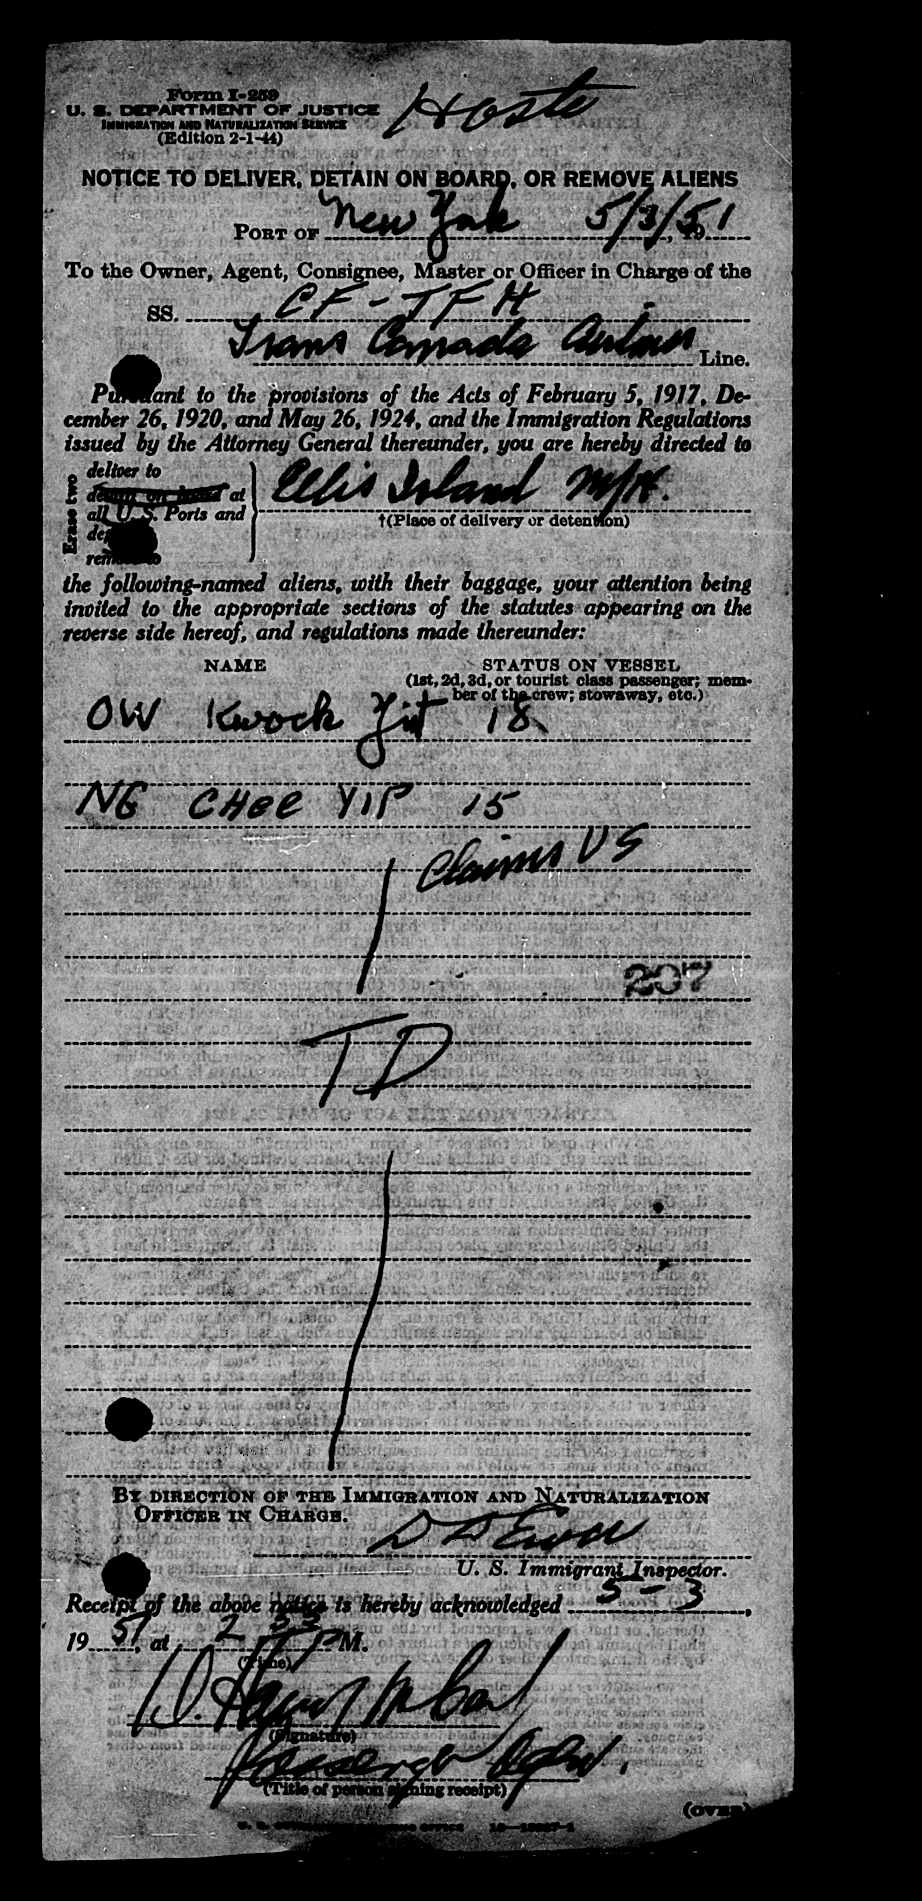 Form I-259
U. S. DEPARTMENT OF JUSTICE
IMMIGRATION AND NATURALIZATION SERVICE
(Edition 2-1-44)
NOTICE TO DELIVER, DETAIN ON BOARD, OR REMOVE ALIENS
PORT OF New York 5/3/51, 19
To the Owner, Agent, Consignee, Master or Officer in Charge of the
SS. CF-TFH
Trans Canada Airlines Line.
Pursuant to the provisions of the Acts of February 5, 1917, De-
cember 26, 1920, and May 26, 1924, and the Immigration Regulations
issued by the Attorney General thereunder, you are hereby directed to
Erase two
deliver to
detain on board at
all U. S. Ports and
remove to
Ellis Island
†(Place of delivery or detention)
the following-named aliens, with their baggage, your attention being
invited to the appropriate sections of the statutes appearing on the
reverse side hereof, and regulations made thereunder:
NAME STATUS ON VESSEL
(1st, 2d, 3d, or tourist class passenger; mem-
ber of the crew; stowaway, etc.)
OW Kwock Yit 18
NG CHEE YIP 15
Claims US
207
TD
BY DIRECTION OF THE IMMIGRATION AND NATURALIZATION
OFFICER IN CHARGE.
U. S. Immigrant Inspector.
Receipt of the above notice is hereby acknowledged 5-3,
19 51, at 2 55 P M.
(Time)
(Signature)
Passenger Agent.
(Title of person signing receipt)
(OVER)